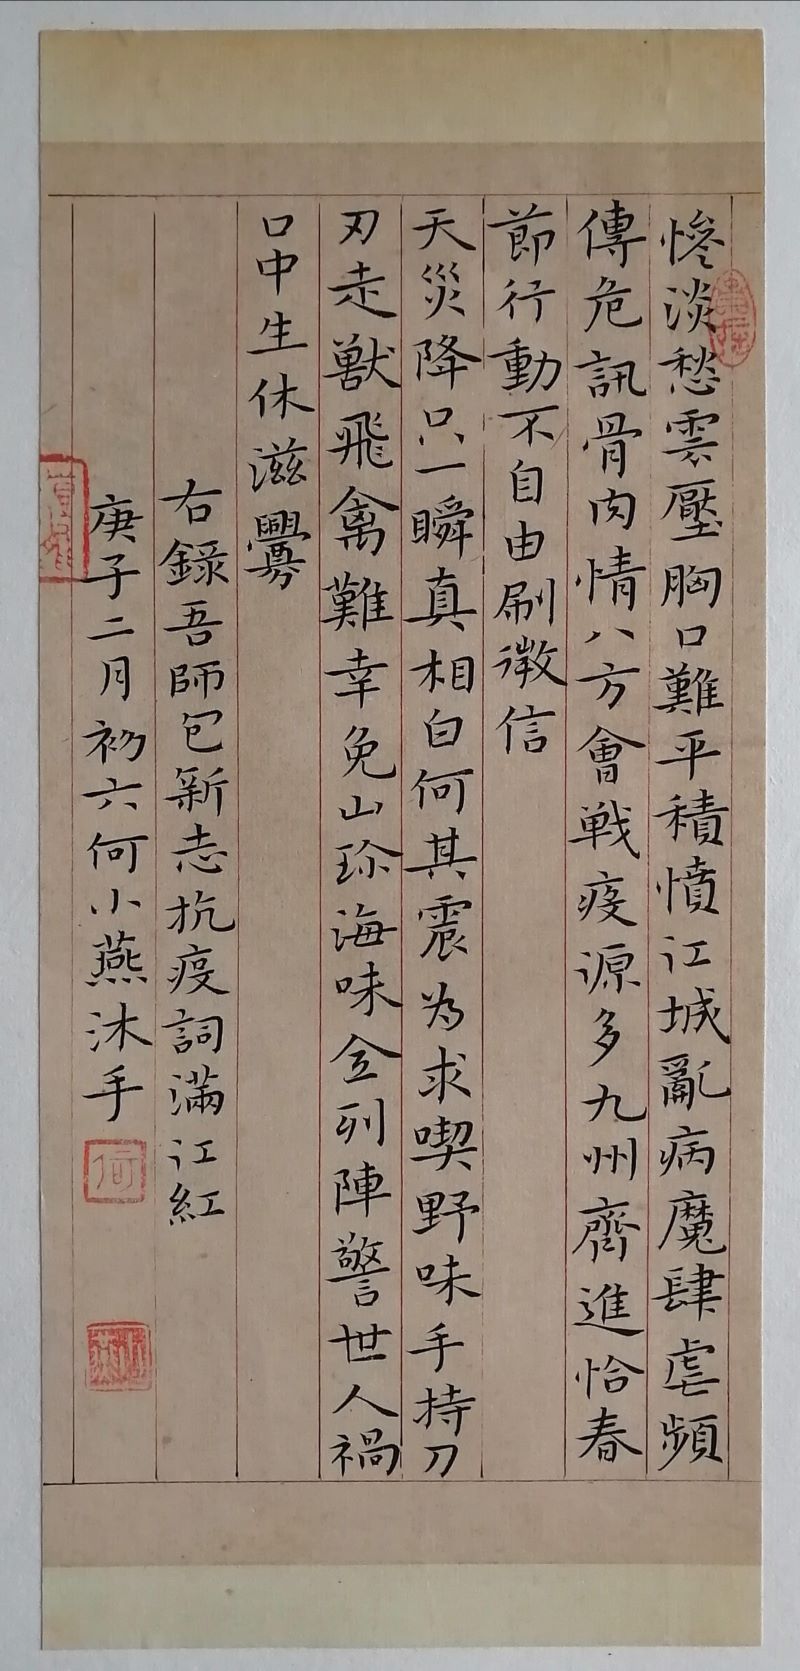 慘淡愁雲壓胸口難平積憤江城亂病魔肆虐頻
傳危訊骨肉情八方會戰疫源多九州齊進恰春
節行動不自由刷徵信
天災降只一瞬真相白何其震為求喫野味手持刀
刃走獸飛禽難幸免山珍海味全列陣警世人禍
口中生休滋釁
右錄吾師包新志抗疫詞滿江紅
庚子二月初六何小燕沐手
何
小燕